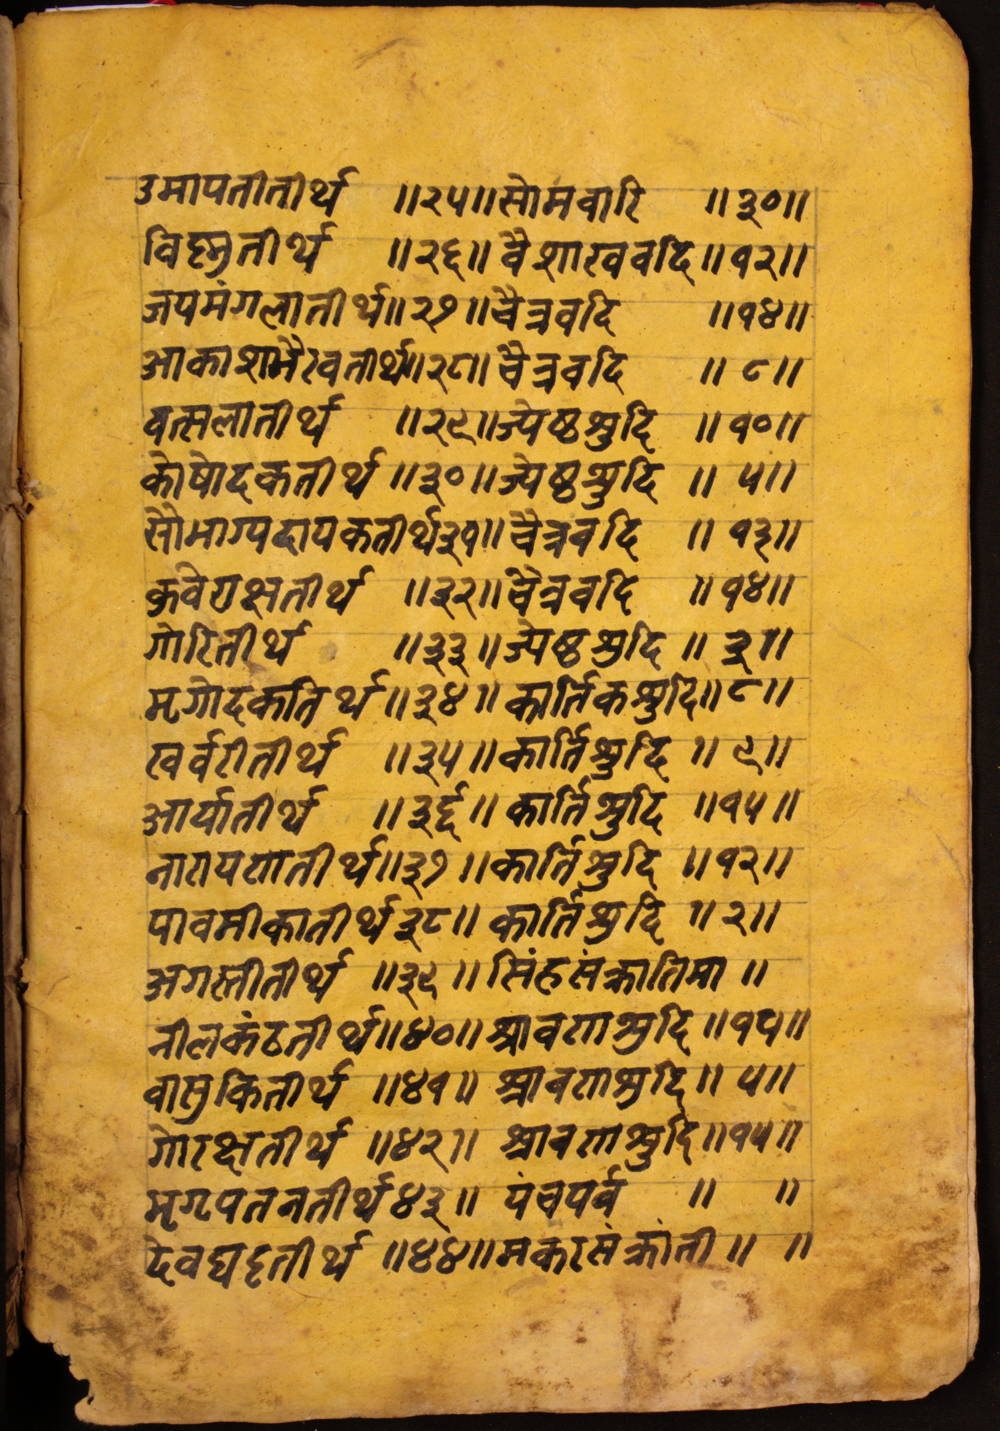 उमापतीतीर्थ ॥२५॥ सोमवारि ॥३०॥
विष्नुतीर्थ ॥२६॥ वैशाखवदि ॥१२॥
जयमंगलातीर्थ ॥२७॥ चैत्रवदि ॥१४॥
आकाशभैरवतीर्थ ॥२८॥ चैत्रवदि ॥८॥
वत्सलातीर्थ ॥२९॥ ज्येष्ठशुदि ॥१०॥
कोषोदकतीर्थ ॥३०॥ ज्येष्ठश्रुदि ॥५॥
सौभाग्यदायकतीर्थ ३१॥ चैत्रवदि ॥१३॥
॥३२॥ चैत्रवदि ॥१४॥
गोरितीर्थ ॥३३॥ ज्येष्ठशुदि ॥३॥
मृगोदकतिर्थ ॥३४॥ कार्तिकश्रुदि ॥८॥
खर्वरीतीर्थ ॥३५॥ कार्तिश्रुदि ॥९॥
आर्यातीर्थ ॥३६॥ कार्तिश्रुदि ॥१५॥
नारायणातीर्थ ॥३७॥ कार्तिश्रुदि ॥१२॥
पावमीकातीर्थ ३८॥ कार्तिश्रुदि ॥२॥
अगस्तीतीर्थ ॥३९॥ सिंहसंक्रातिमा ॥
नीलकंठतीर्थ ॥४०॥ श्रावणाश्रुदि ॥१५॥
वासुकितीर्थ ॥४१॥ श्रावणाश्रुदि ॥५॥
गोरक्षतीर्थ ॥४२॥ श्रावणाश्रुदि ॥१५॥
मृगपतनतीर्थ ४३॥ पंचपर्व ॥ ॥
॥४४॥ मकरसंक्रांती ॥ ॥